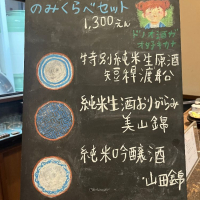 のみくらべセット
1,300えん
特別純米生原酒
短稈渡船
純米生酒おりがらみ
美山錦
純米吟醸酒
山田錦